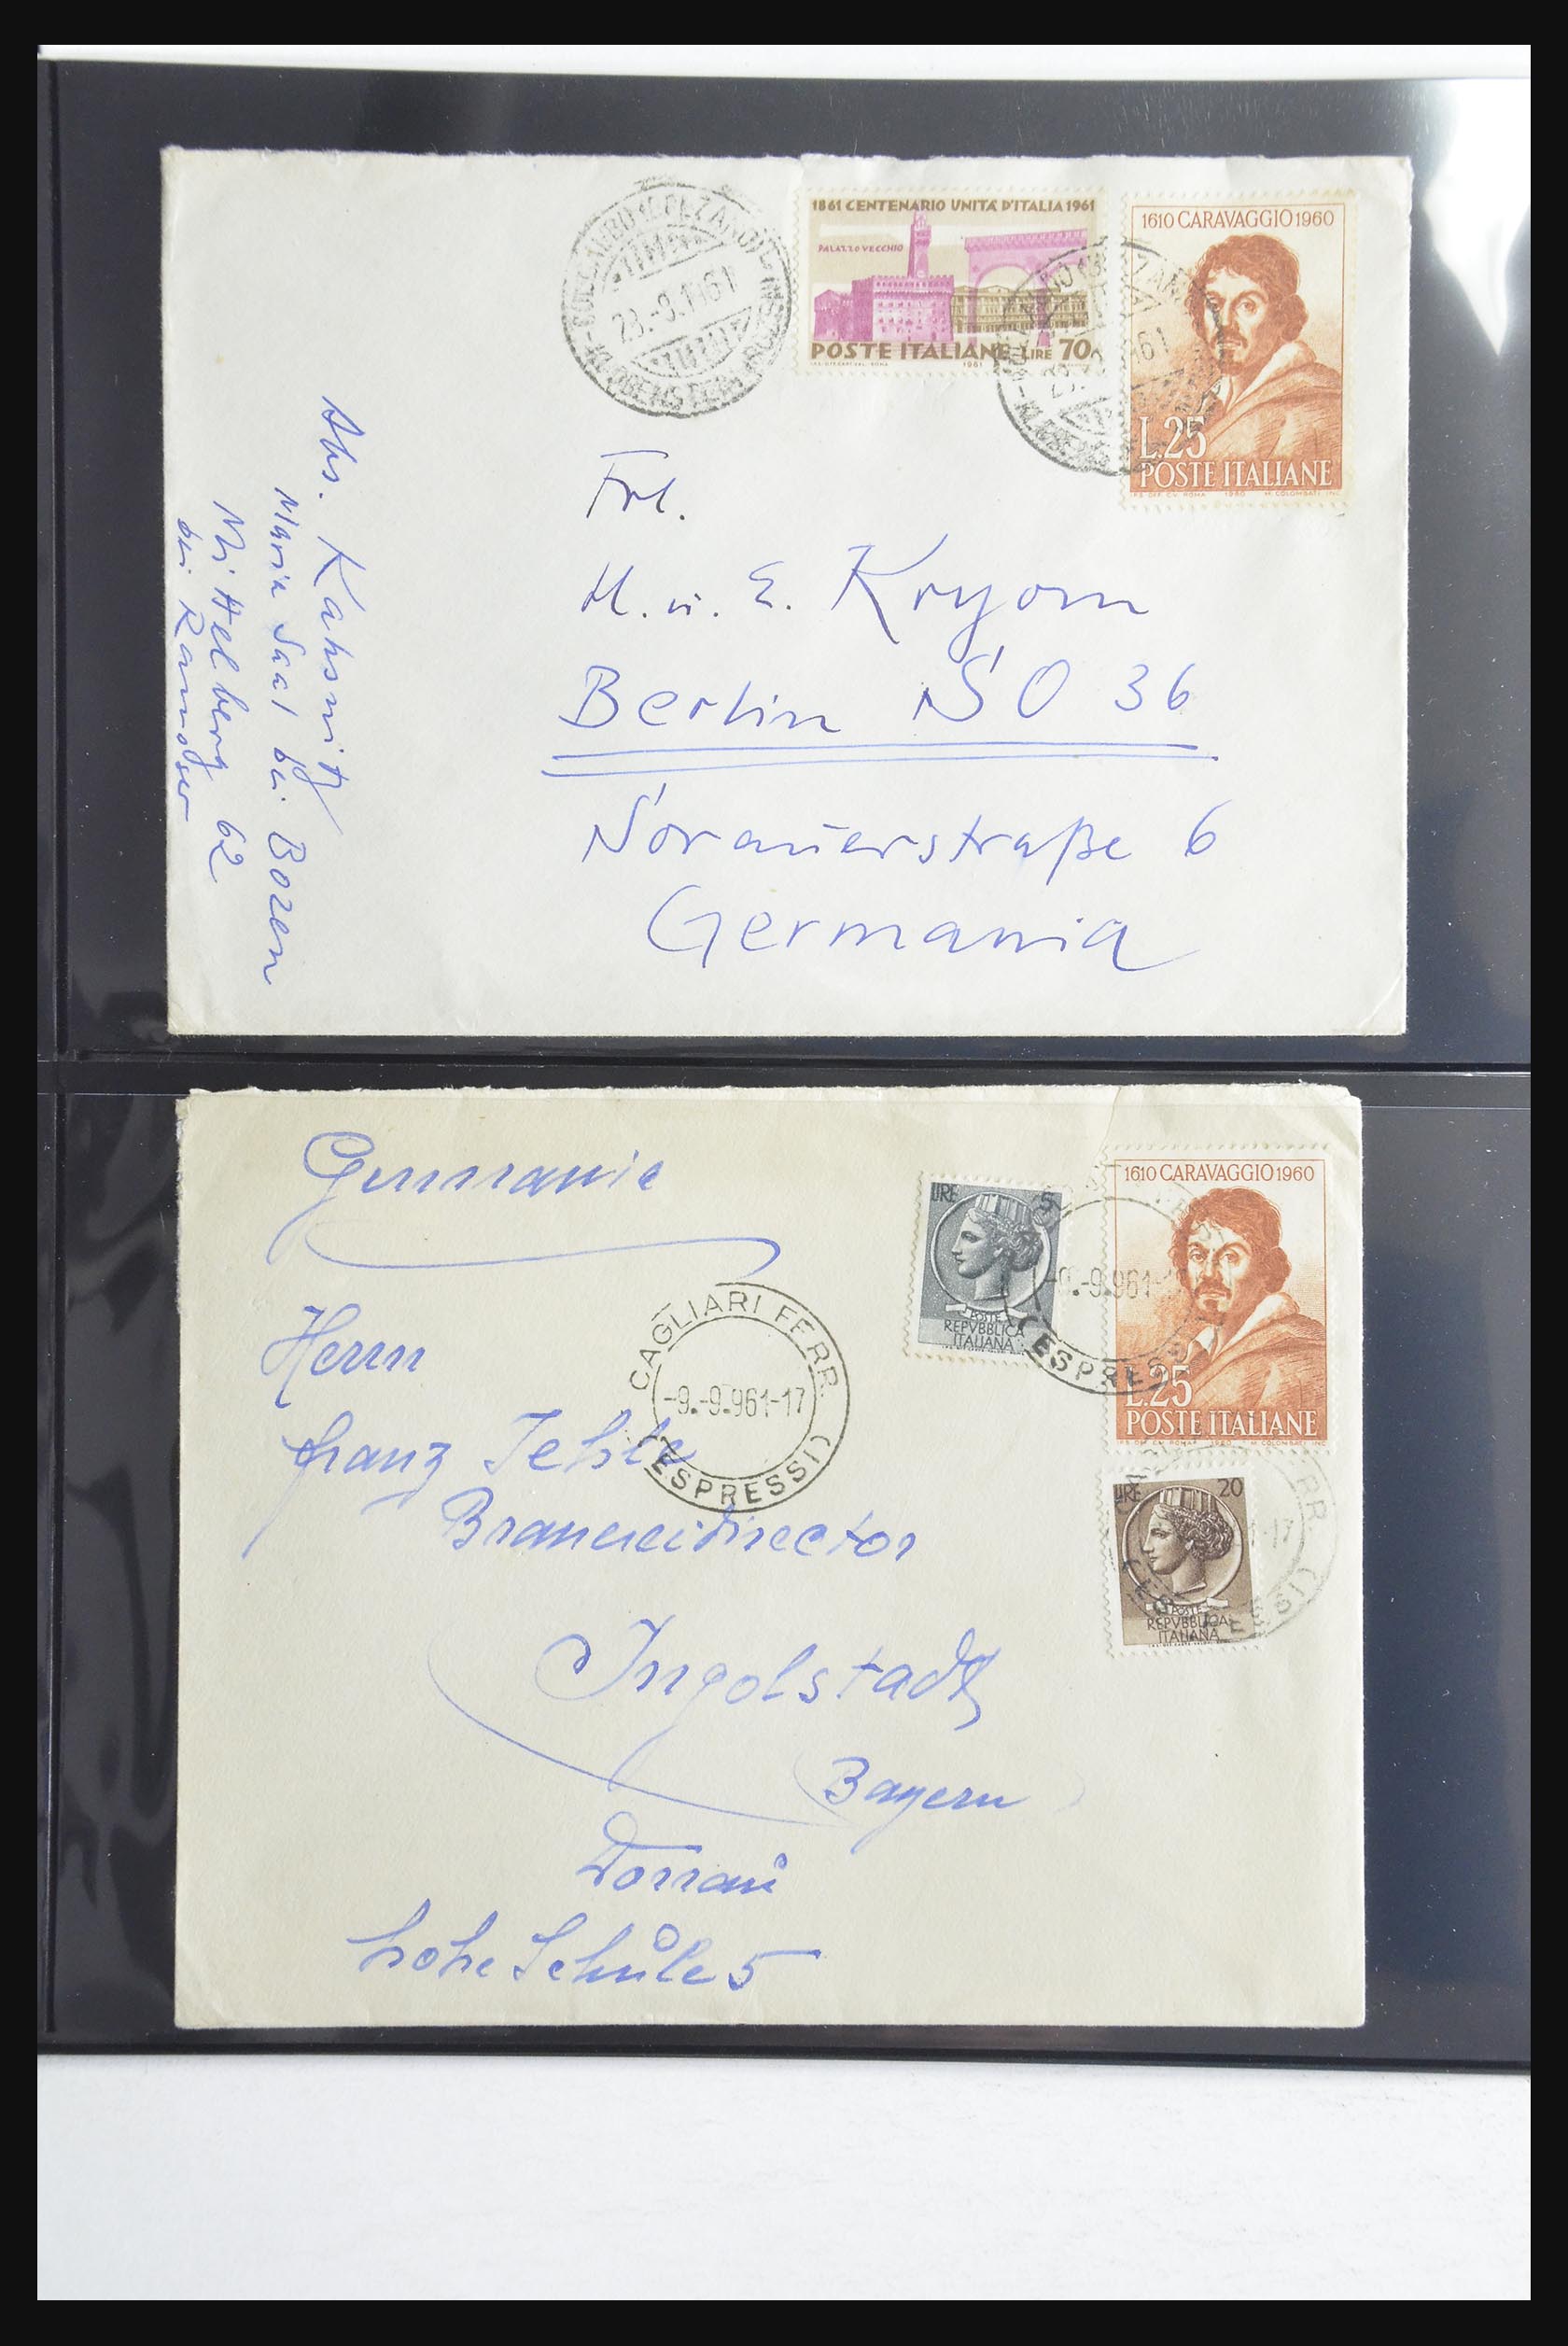 1861 CENTENARIO UNITÀ D'ITALIA 1961
PALAZZO VECCHIO
POSTE ITALIANE LIRE 70
1961
1610 CARAVAGGIO 1960
L.25
POSTE ITALIANE
1960 M. COLOMBATI INC.
23.-9.1961
Frl.
M. u. E.
Berlin SO 36
Sorauerstraße 6
Germania
Abs. Kahsnitz
Maria Saal bei Bozen
Mittelberg 62
bei Ramoser
Germania
LIRE 5
POSTE
REPVBBLICA
ITALIANA
1610 CARAVAGGIO 1960
L.25
POSTE ITALIANE
1960 M. COLOMBATI INC.
-9.-9.961-
(ESPRESSI)
CAGLIARI FERR.
-9.-9.961-17
(ESPRESSI)
LIRE 20
POSTE
REPVBBLICA
ITALIANA
Herrn
Franz
Brauereidirector
Ingolstadt
Bayern
Donau
hohe Schule 5